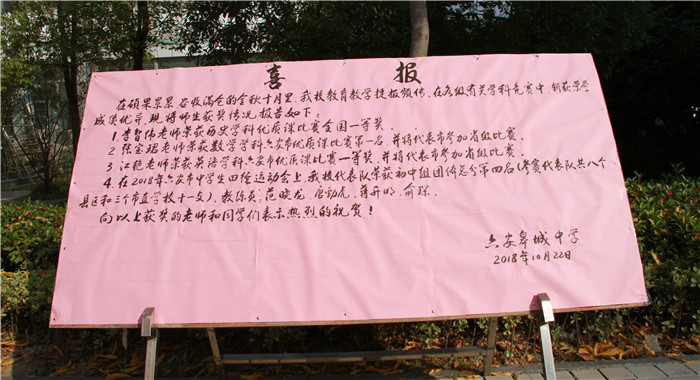 喜报
在硕果累累、谷收满仓的金秋十月里,我校教育教学捷报频传,在各级有关学科竞赛中师获荣誉
成绩优异,现将师生获奖情况报告如下:
1.曹智伟老师荣获历史学科优质课比赛全国一等奖。
2.张宝珺老师荣获数学学科六安市优质课比赛第一名,并将代表市参加省级比赛。
3.汪艳老师荣获英语学科六安市优质课比赛一等奖,并将代表市参加省级比赛。
4.在2018年六安市中学生田径运动会上,我校代表队荣获初中组团体总分第四名(参赛代表队共八个
县区和三个市直学校十一支),教练员:范晓龙、启动虎、蒋开明、俞琼。
向以上获奖的老师和同学们表示热烈的祝贺!
六安皋城中学
2018年10月22日